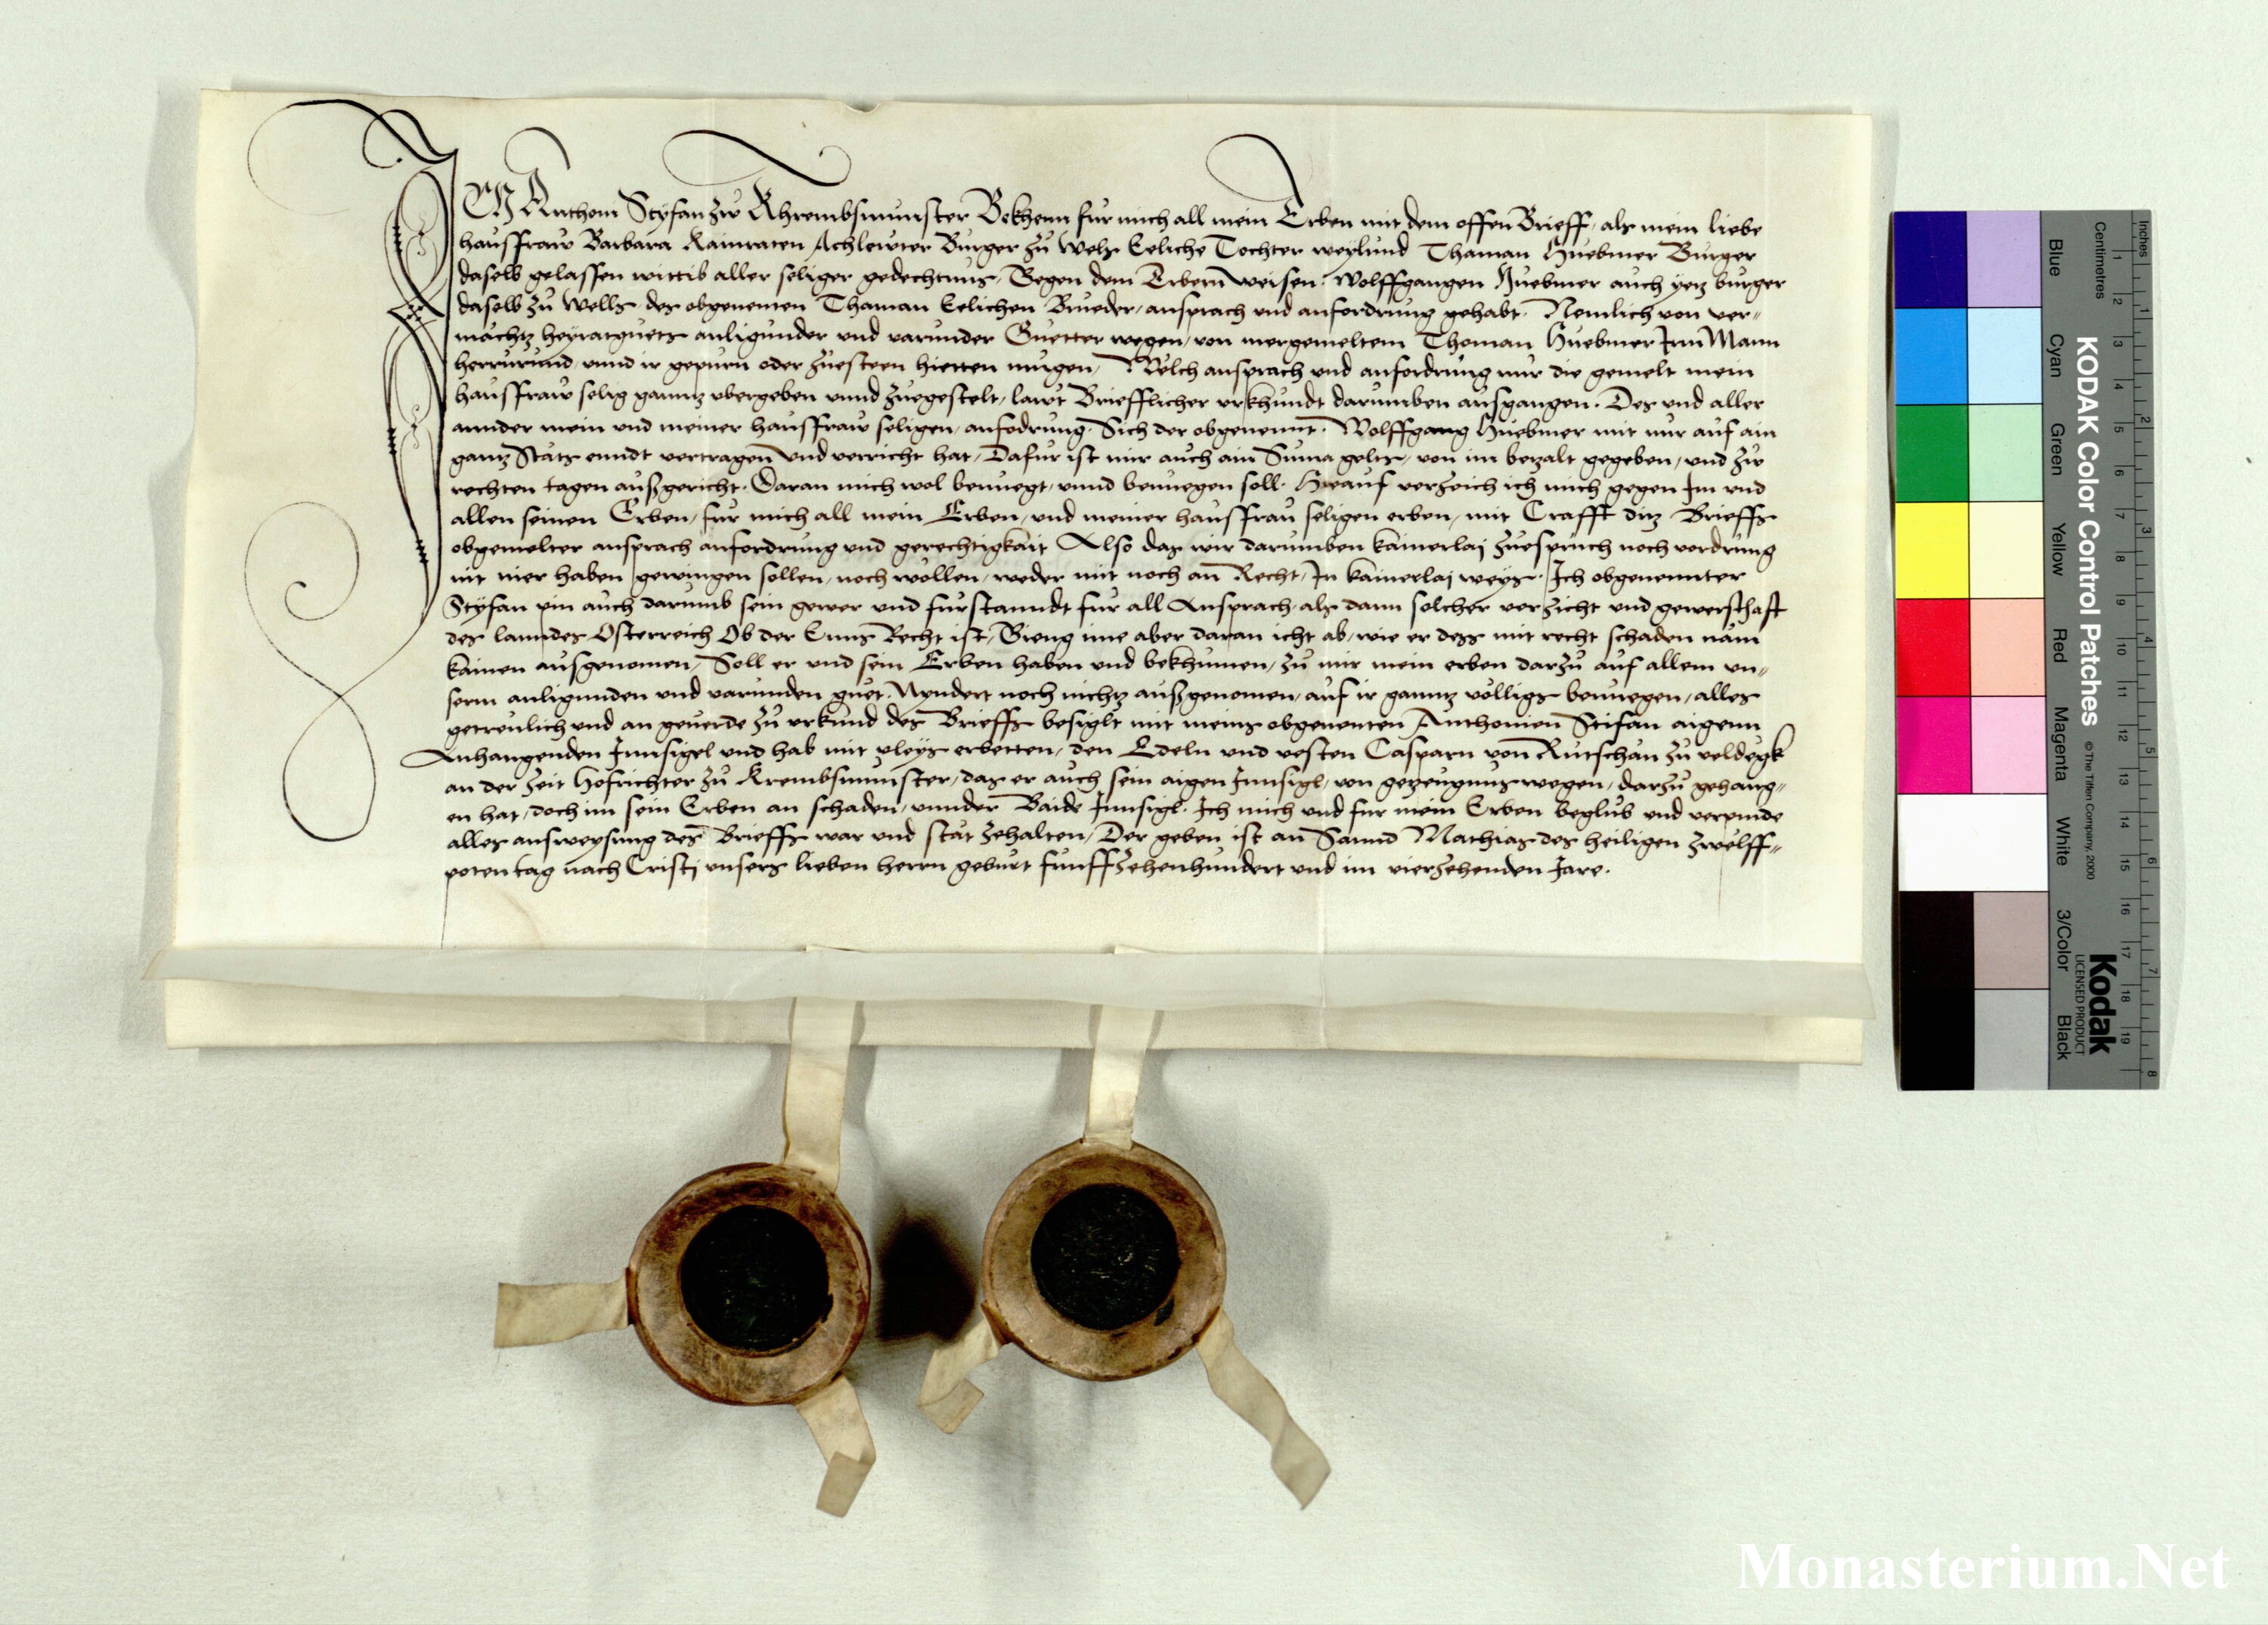 ICH Anthoni Styfan zw Khrembsmunster Bekhenn fur mich all mein Erben mit dem offen Brieff, als mein liebe
hausfraw Barbara Kainraten Achlewter Burger zu Wels Eeliche Tochter weylund Thaman Huebmer Burger
daselb gelassen wittib aller seliger gedechtnus, Gegen dem Erbern weisen. Wolffgangen Huebmer auch yetz burger
daselb zu Wells des obgenenten Thaman Eelichen Brueder, ansprach und anfordrung gehabt. Nemlich von ver„
machtz heyratguets anligunder und varunder Guetter wegen, von mergemeltem Thoman Huebmer Irm Mann
herrurund, unnd ir gepurn oder zuesteen hietten mugen, Welch ansprach und anfordrung mir die gemelt mein
hausfraw selig ganntz ubergeben unnd zuegestelt, lawt Briefflicher urkhundt darumben ausgangen. Des und aller
annder mein und meiner hausfraw seligen, anfodrung. Sich der obgenennt. Wolffgang Huebmer mit mir auf ain
gantz Stats enndt vertragen und verricht hat, Dafur ist mir auch ain Suma gelts, von im betzalt gegeben, und zw
rechten tagen außgericht. Daran mich wol benuegt, unnd benuegen soll. Hierauf verzeich ich mich gegen Im und
allen seinen Erben, fur mich all mein Erben, und meiner hausfrau seligen erben, mit Crafft ditz Brieffs
obgemelter ansprach anfordrung und gerechtigkait Also das wir darumben kainerlai zuespruch noch vordrung
nit mer haben gewingen sollen, noch wöllen, weder mit noch an Recht, In kainerlai weys. Ich obgenennter
Styfan pin auch darumb sein gewer und furstanndt fur all Ansprach, als dann solcher verzicht und gewerschaft
des lanndes Osterreich Ob der Enns Recht ist, Gieng ime aber daran icht ab, wie er dess mit recht schaden näm
kainen ausgenomen, Soll er und sein Erben haben und bekhumen, zu mir mein erben darzu auf allem un„
serm anligunden und varunden guet. Nyndert noch nichtz außgenomen, auf ir ganntz völligs benuegen, alles
getreulich und an geuerde zu urkund des Brieffs besiglt mit meins obgenenten Anthonien Stifan aigenn
Anhangenden Innsigel und hab mit vleys erbetten, den Edeln und vesten Casparn von Rutschan zu veldegk
an der zeit Hofrichter zu Krembsmunster, das er auch sein aigen Innsigl, von getzeugnus wegen, darzu gehang„
en hat, doch im sein Erben an schaden, unnder Baide Innsigl. Ich mich und fur mein Erben beglub und verpinde
alles ausweysung des Brieffs war und stät zehalten, Der geben ist an Sannd Mathias des heiligen zwelff„
poten tag nach Cristi unsers lieben herrn geburt funffzehenhundert und im vierzehenden Jare.
Inches
Centimetres
KODAK Color Control Patches
© The Tiffen Company, 2000
Kodak
LICENSED PRODUCT
Blue
Cyan
Green
Yellow
Red
Magenta
White
3/Color
Black
1 2 3 4 5 6 7 8 9 10 11 12 13 14 15 16 17 18 19
1 2 3 4 5 6 7 8
Monasterium.Net